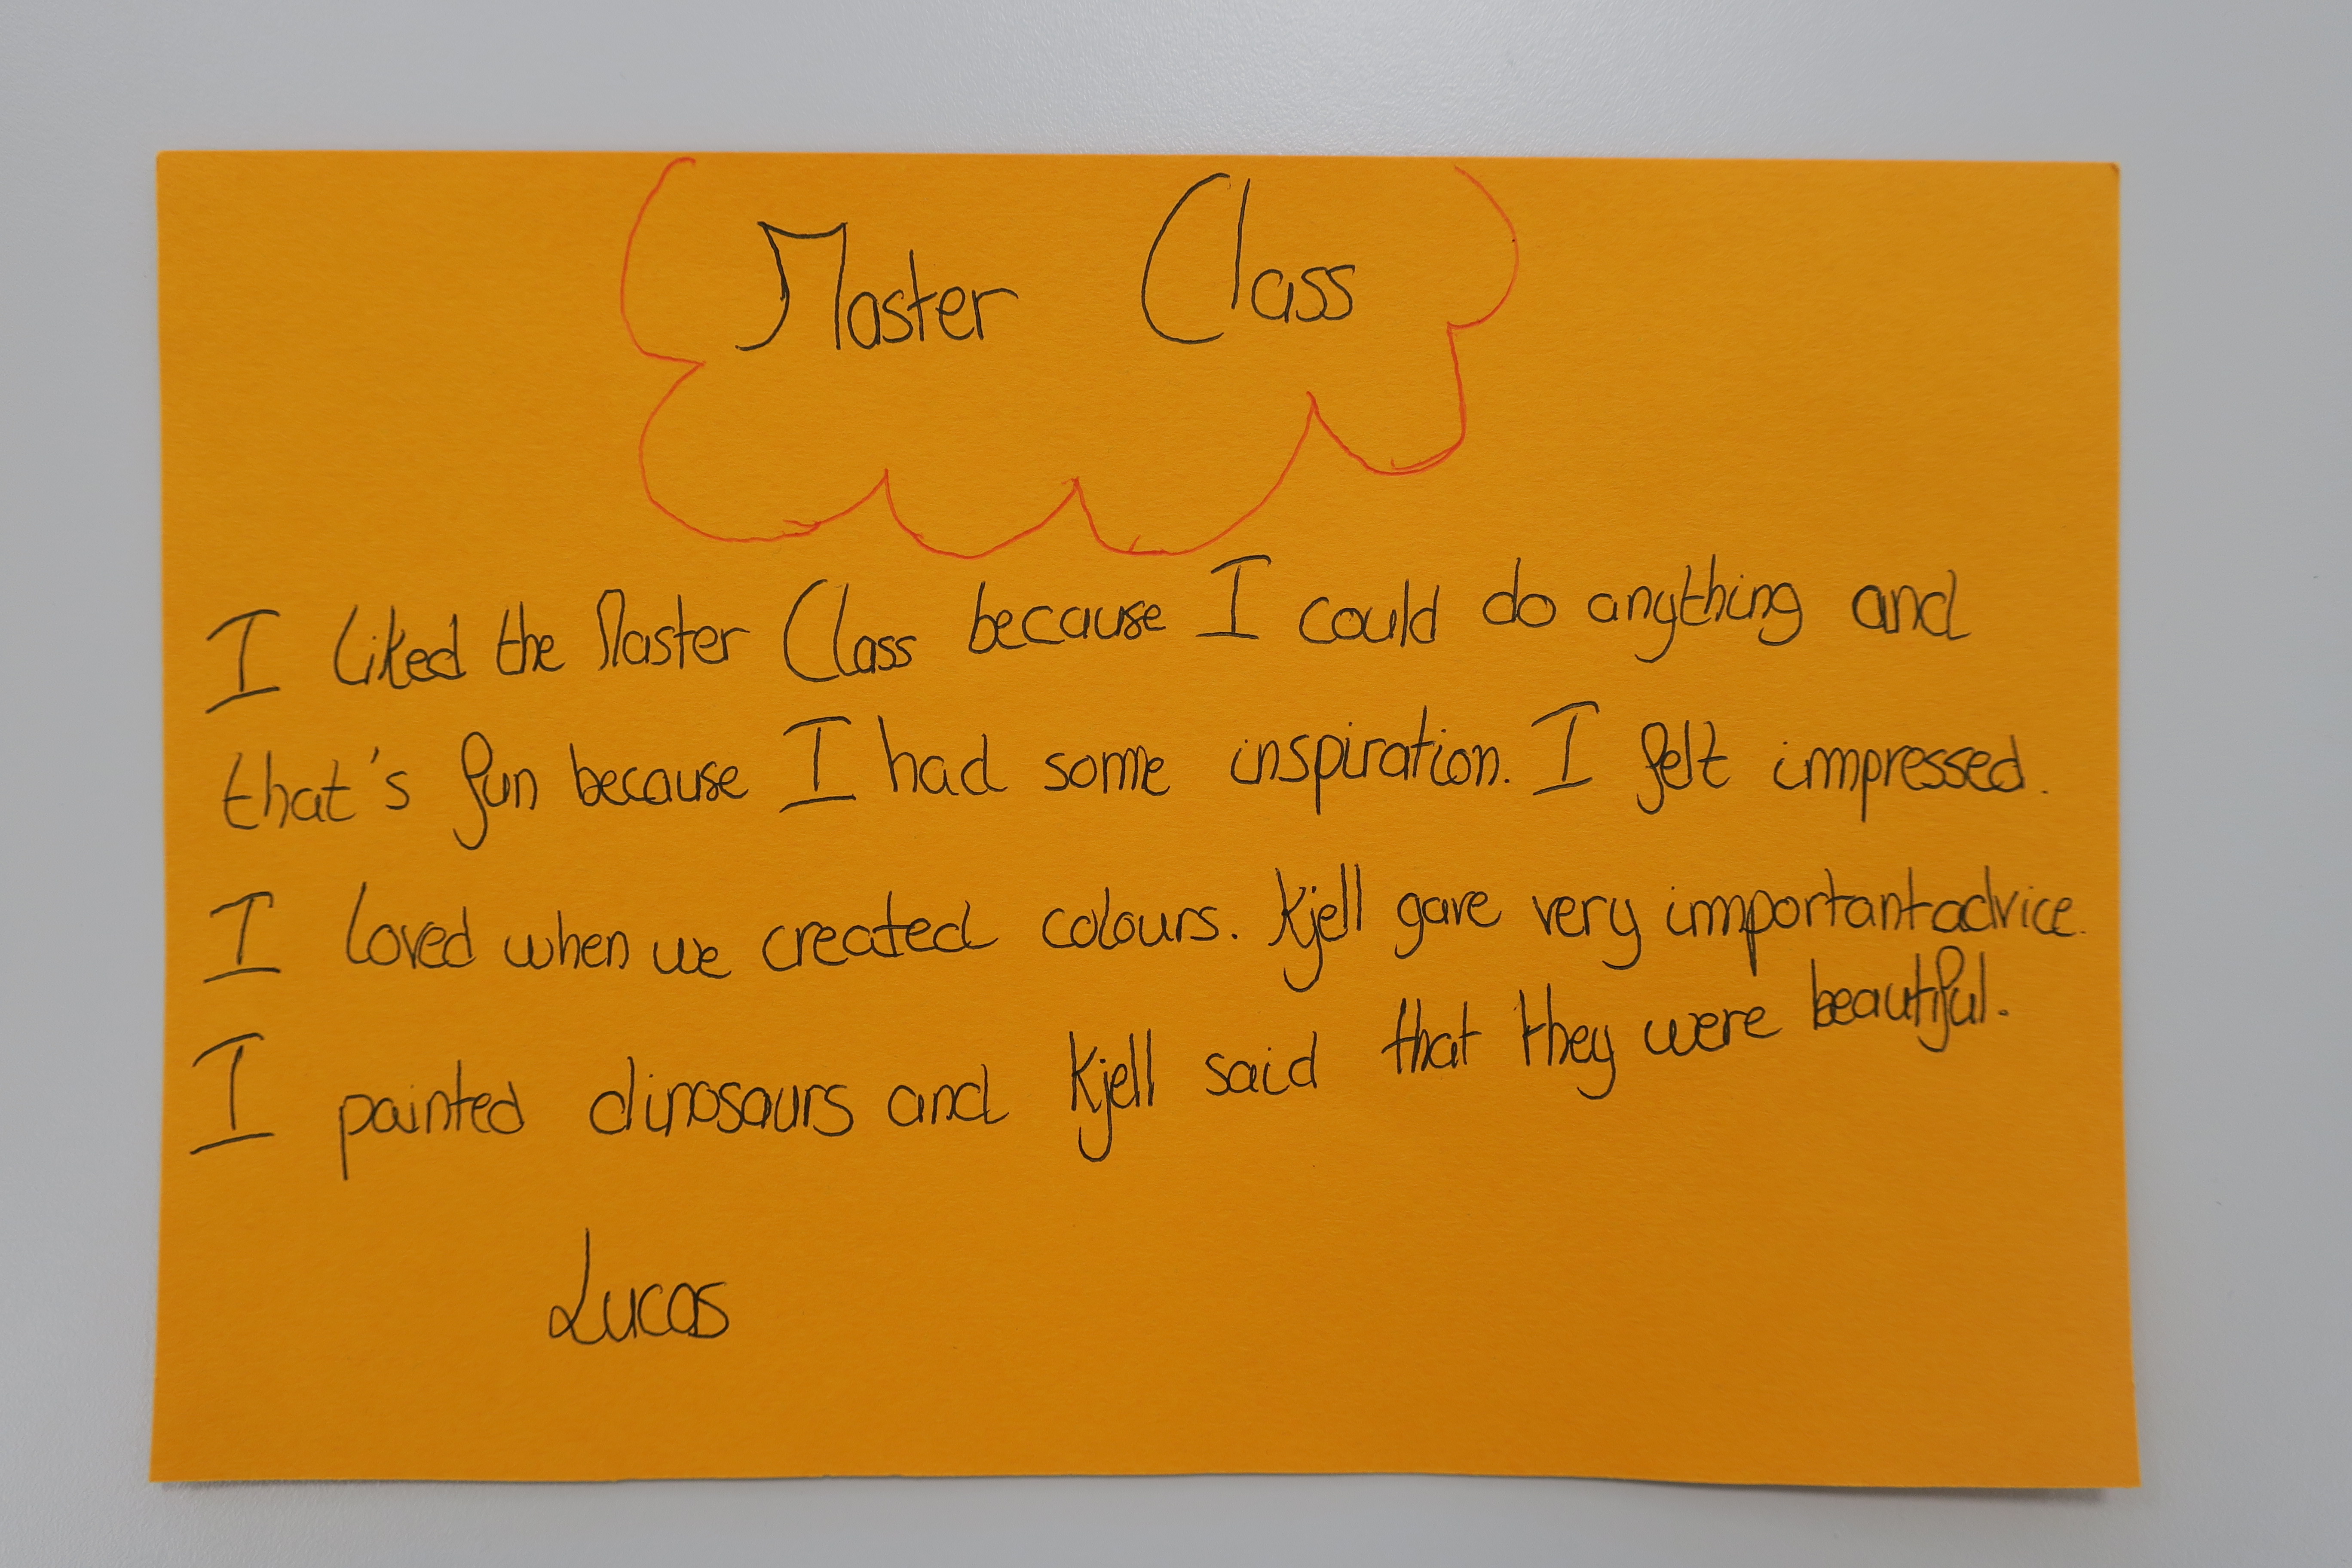 Master Class
I liked the Master Class because I could do anything and
that's fun because I had some inspiration. I felt impressed.
I loved when we created colours. Kjell gave very important advice.
I painted dinosaurs and Kjell said that they were beautiful.
Lucas